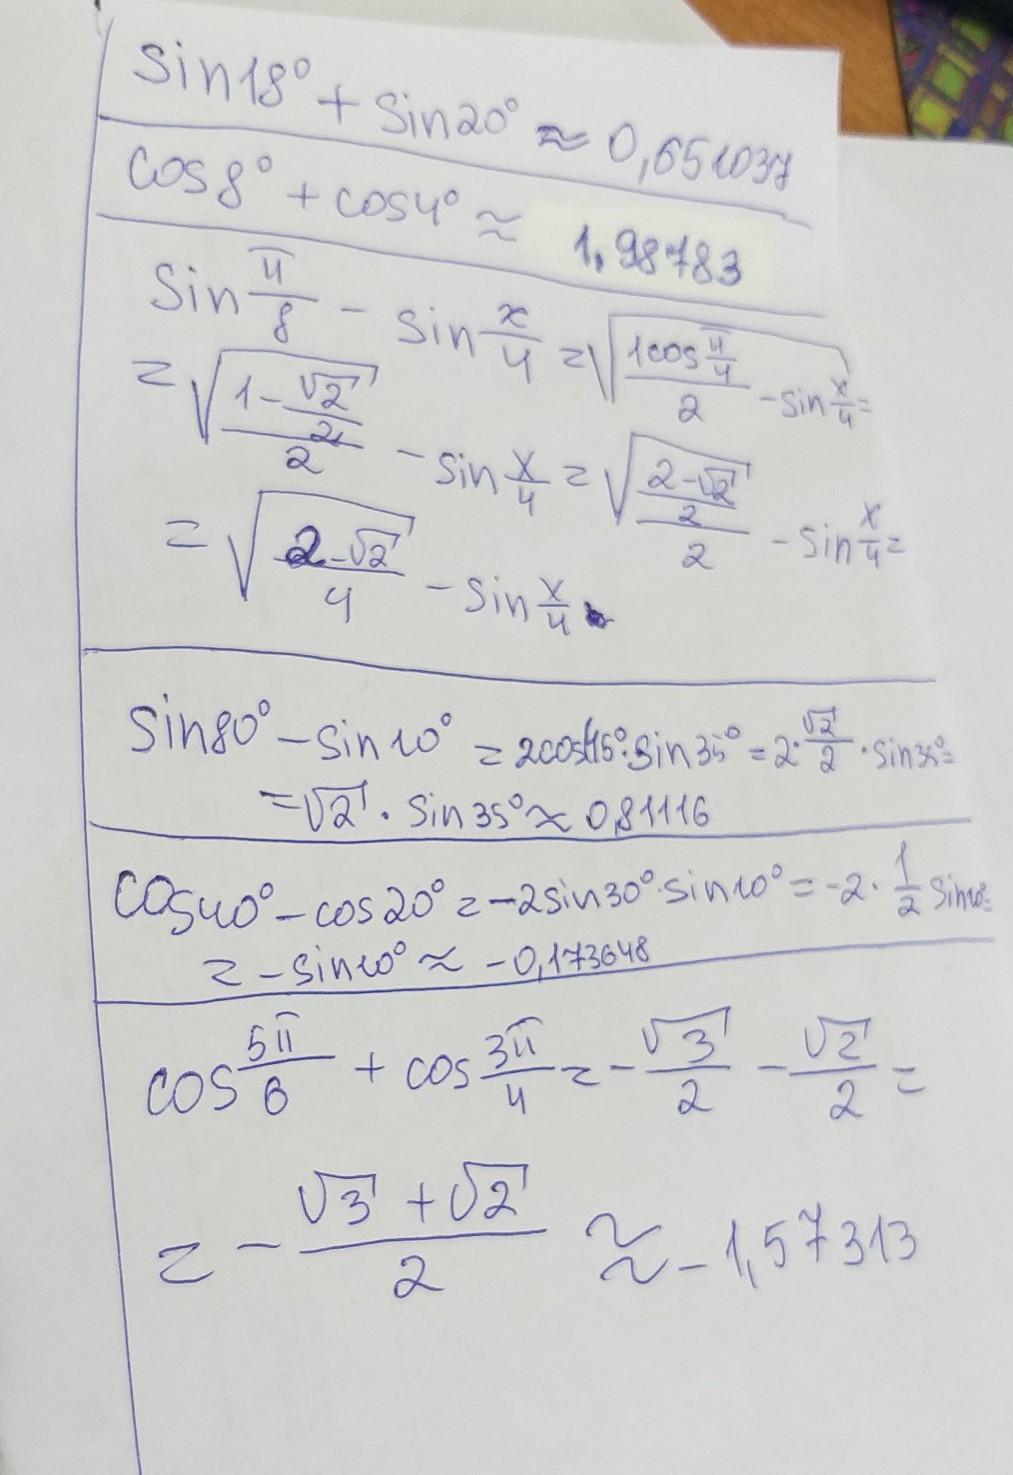 sin18° + sin20° ≈ 0,651037
cos8° + cos4° ≈ 1,98783
sin π/8 - sin x/4 = √((1cos π/4)/2) - sin x/4 =
= √((1-√2/2)/2) - sin x/4 = √(((2-√2)/2)/2) - sin x/4 =
= √((2-√2)/4) - sin x/4
sin80° - sin10° = 2cos45°·sin35° = 2·√2/2·sin35°=
=√2·sin35° ≈ 0,81116
cos40° - cos20° = -2sin30°·sin10° = -2·1/2 sin10°=
= -sin10° ≈ -0,173648
cos 5π/6 + cos 3π/4 = -√3/2 - √2/2 =
= -(√3+√2)/2 ≈ -1,57313